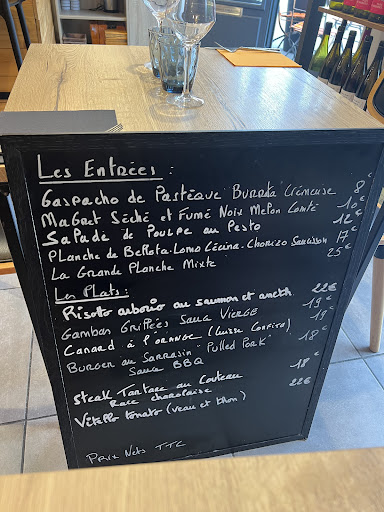 Les Entrées :
Gaspacho de Pastèque "Burrata" Crémeuse 8€
Magret Séché et Fumé Noix Melon Comté 10€
Salade de Poulpe au Pesto 12€
Planche de Bellota-Lomo Cécina-Chorizo Saucisson 17€
La Grande Planche Mixte 25€
Les Plats :
Risoto arborio au saumon et aneth 22€
Gambas Grillées Sauce Vierge 19€
Canard à l'orange (Cuisse Confite) 19€
Burger au Sarrasin "Pulled Pork" 18€
Sauce BBQ
Steak Tartare au Couteau 18€
Race charolaise
Vitello tonato (veau et thon) 22€
Prix Nets TTC